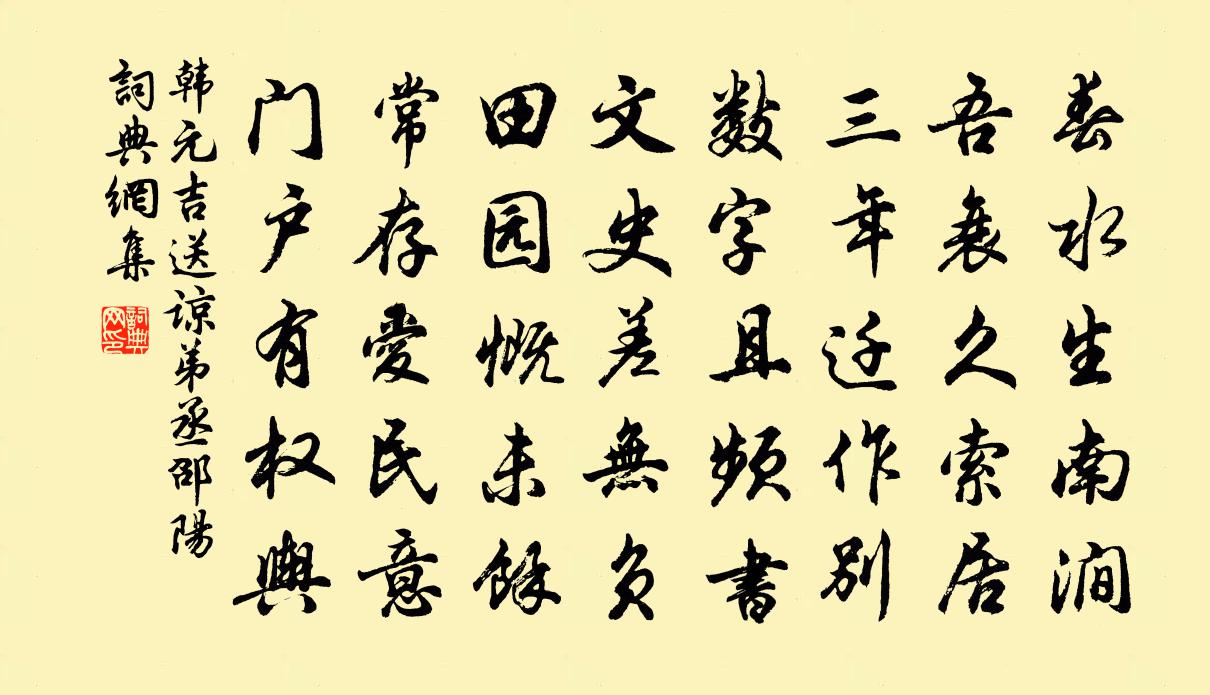 春水生南涧
吾衰久索居
三年迁作别
数字且频書
文史差無负
田园慨未餘
常存愛民意
门户有权輿
韩元吉送谅弟丞邵陽
詞典網集
詞典网印